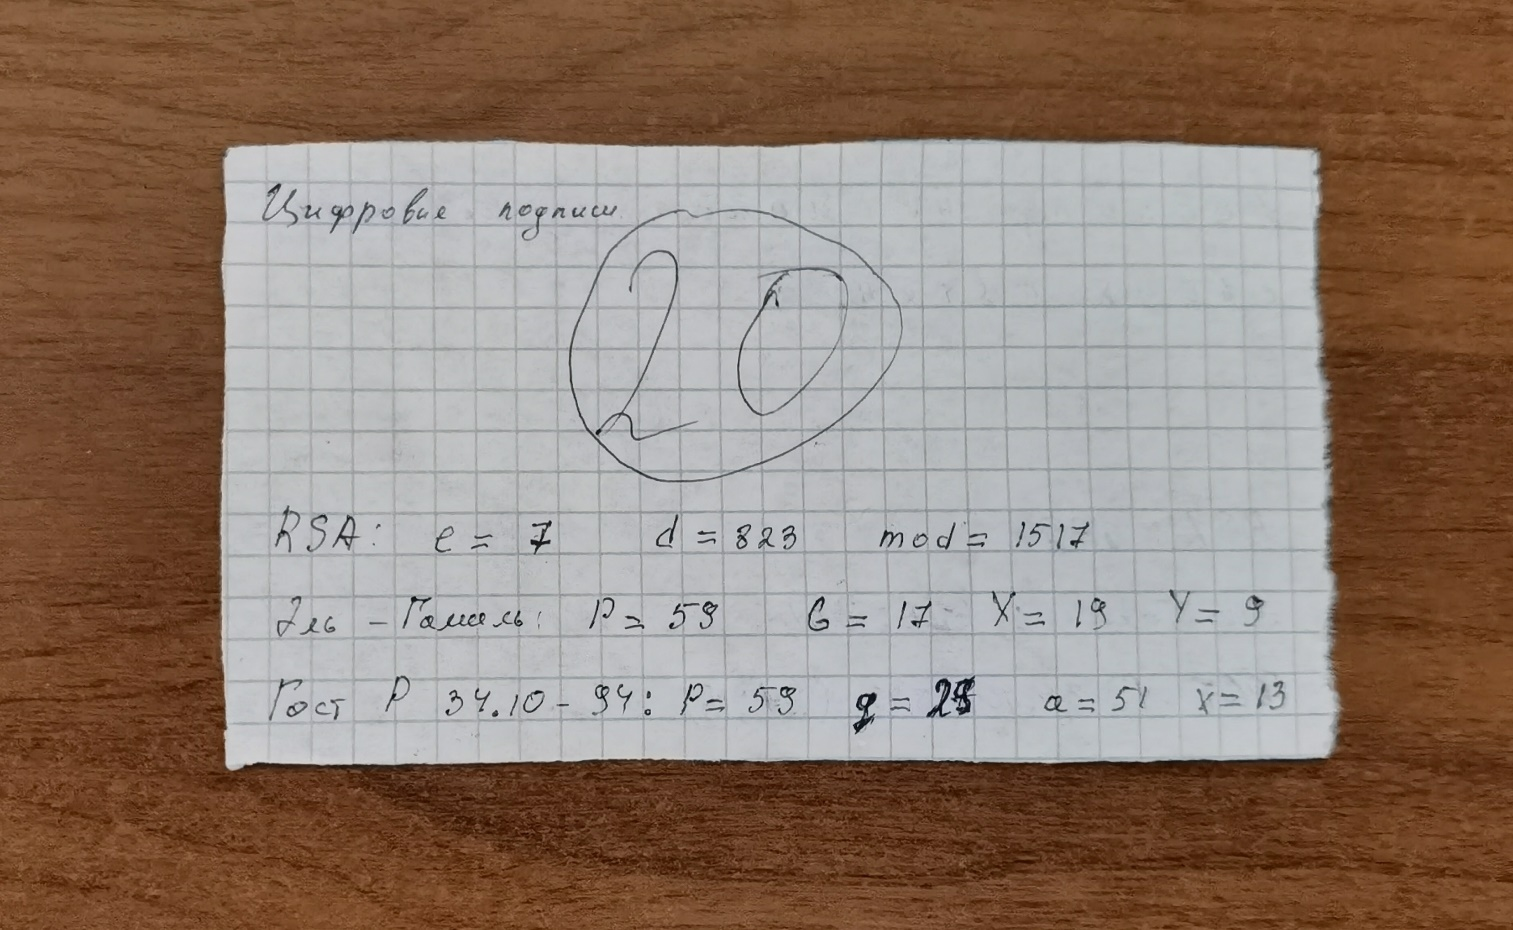 Цифровые подписи
20
RSA: e = 7 d = 823 mod = 1517
Эль - Гамаль: P = 59 G = 17 X = 19 Y = 9
Гост Р 34.10 - 94: P = 59 q = 29 a = 51 x = 13